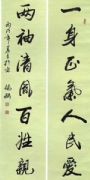 一身正氣人民愛
兩袖清風百姓親